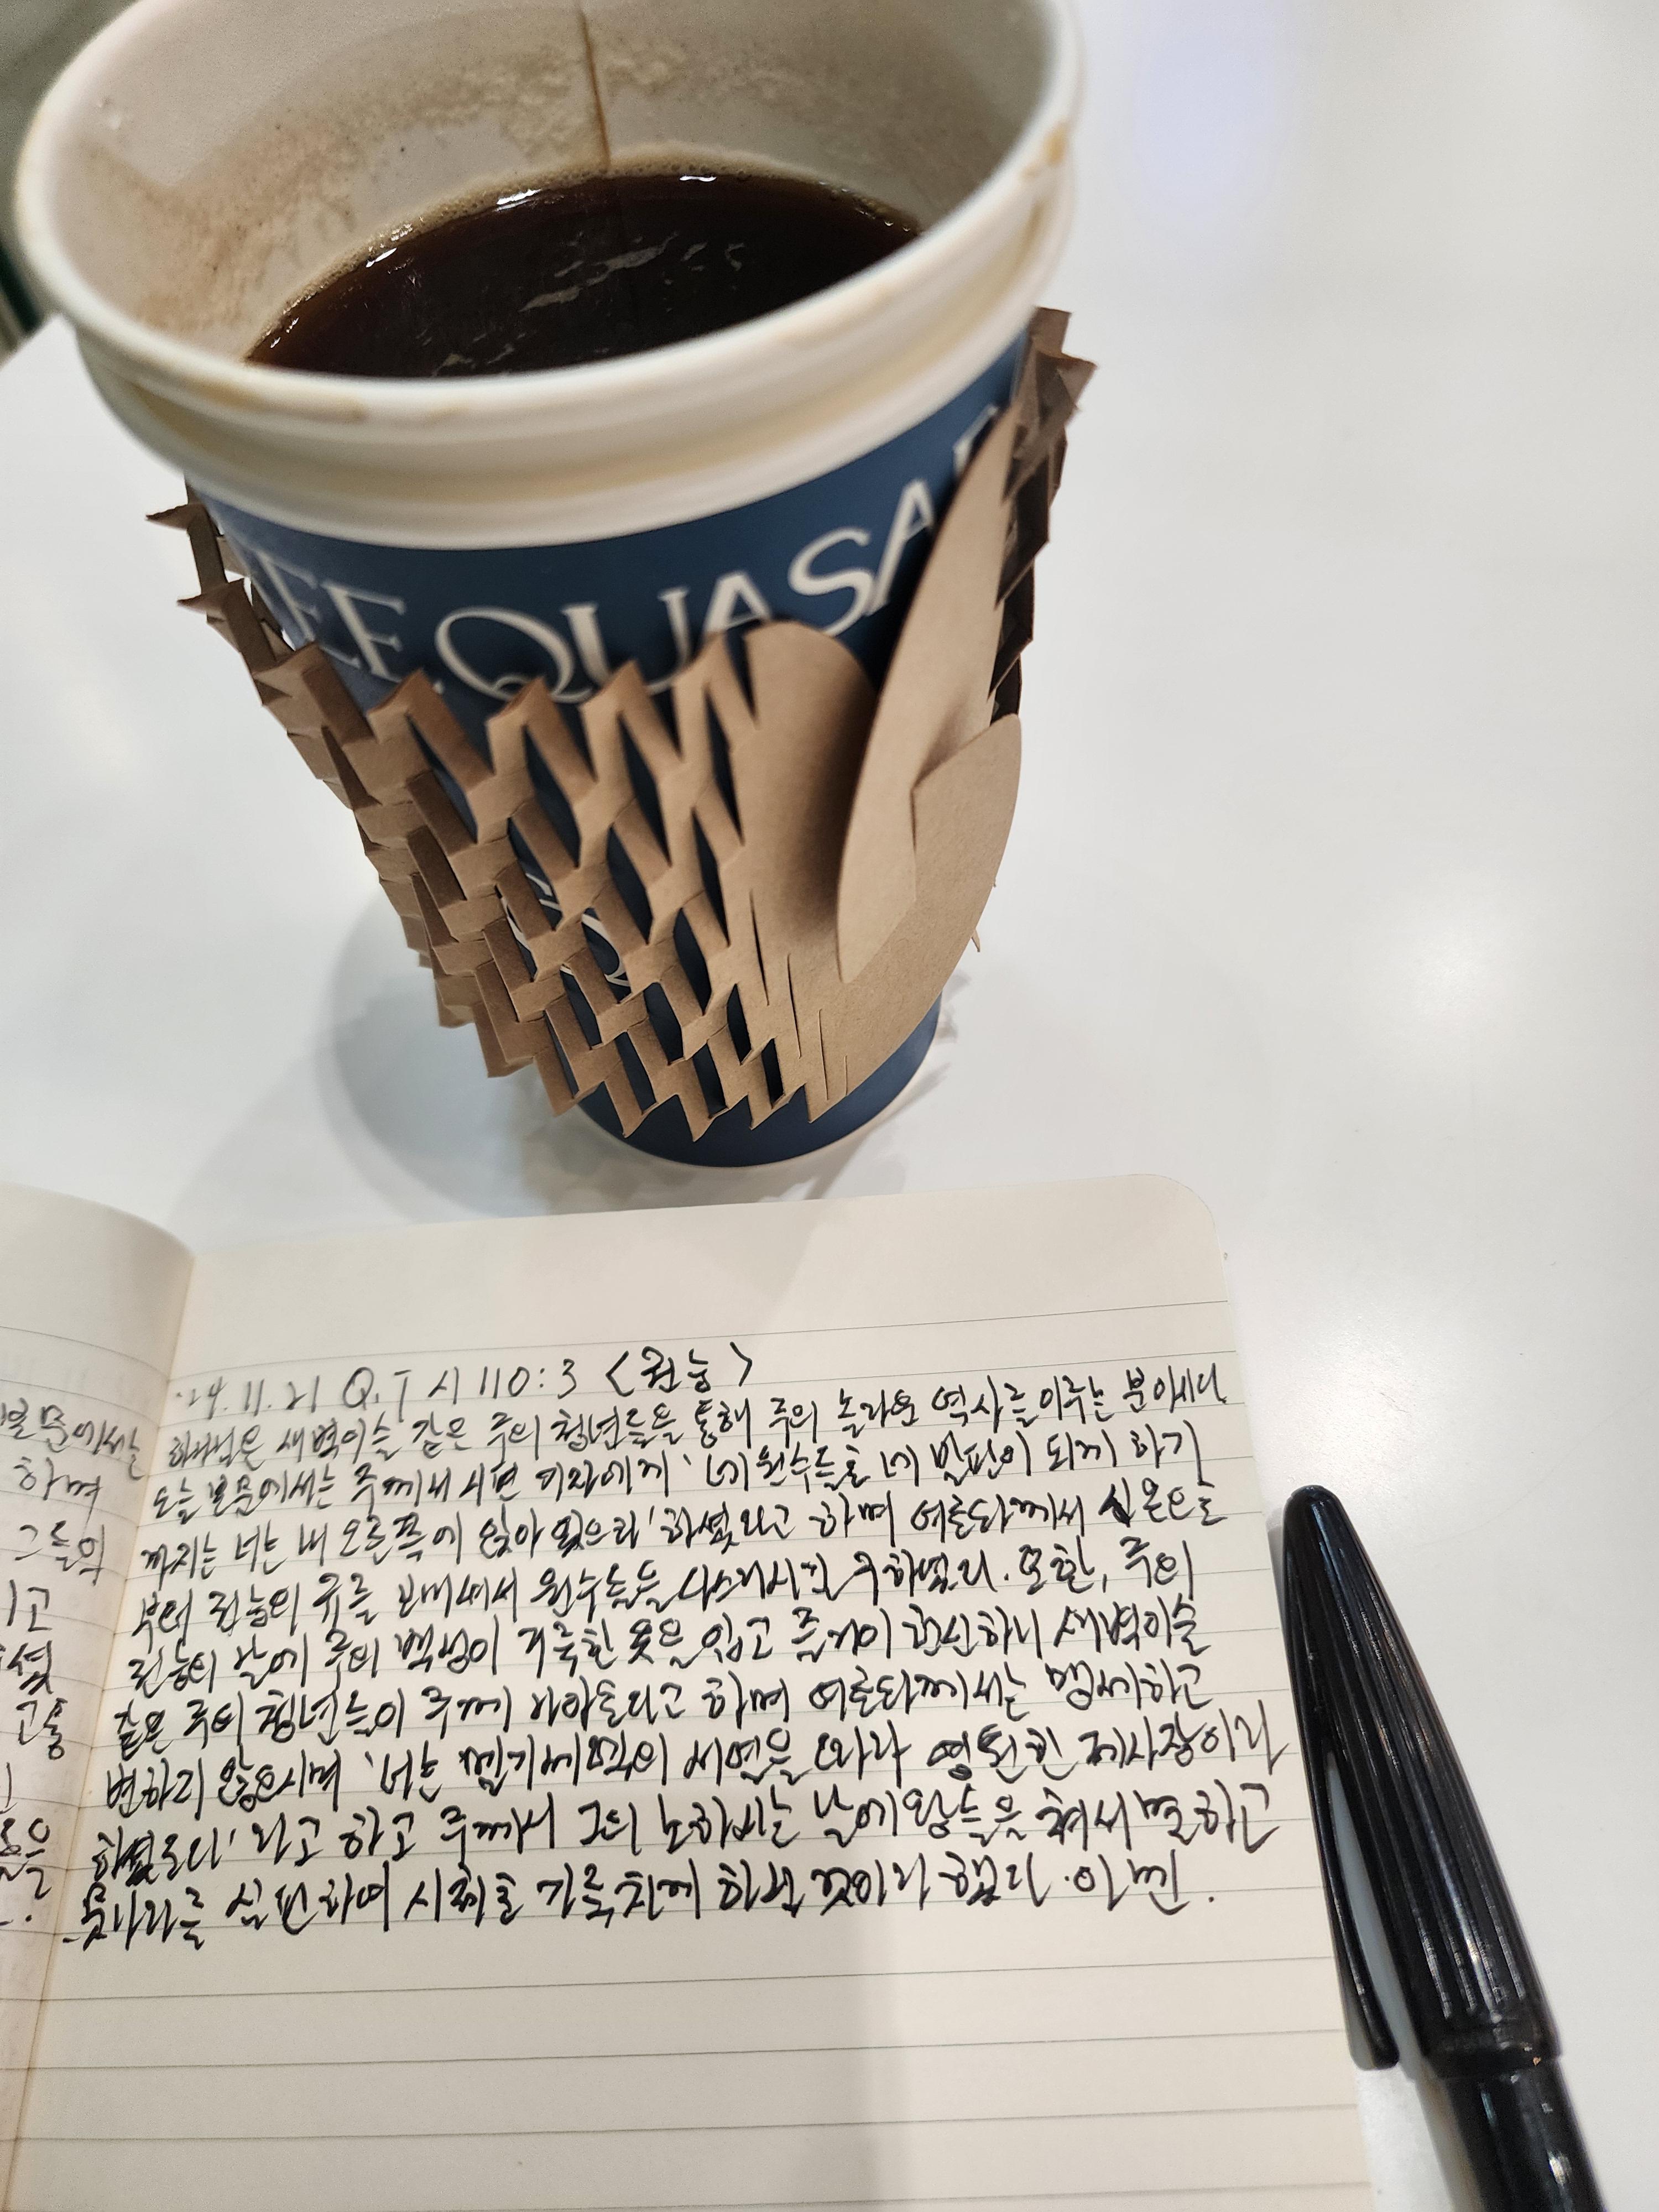 EE QUASA
'24.11.21 Q.T 시110:3 <권능>
하나님은 새벽이슬 같은 주의 청년들을 통해 주의 놀라운 역사를 이루는 분이시다.
오늘 본문에서는 주께서 시편 기자에게 '네 원수들로 네 발판이 되게 하기
까지는 너는 내 오른쪽에 앉아 있으라' 하셨다고 하며 여호와께서 시온으로
부터 권능의 규를 보내셔서 원수들을 다스리시라 하였다. 또한, 주의
권능의 날에 주의 백성이 거룩한 옷을 입고 즐거이 헌신하니 새벽이슬
같은 주의 청년들이 주께 나아온다고 하며 여호와께서는 맹세하고
변하지 않으시며 '너는 멜기세덱의 서열을 따라 영원한 제사장이라
하셨도다' 라고 하고 주께서 그의 노하시는 날에 왕들을 쳐서 멸하고
뭇나라를 심판하여 시체로 가득하게 하실 것이라 했다. 아멘.
본문에서는
하며
그들의
고
셨
고통